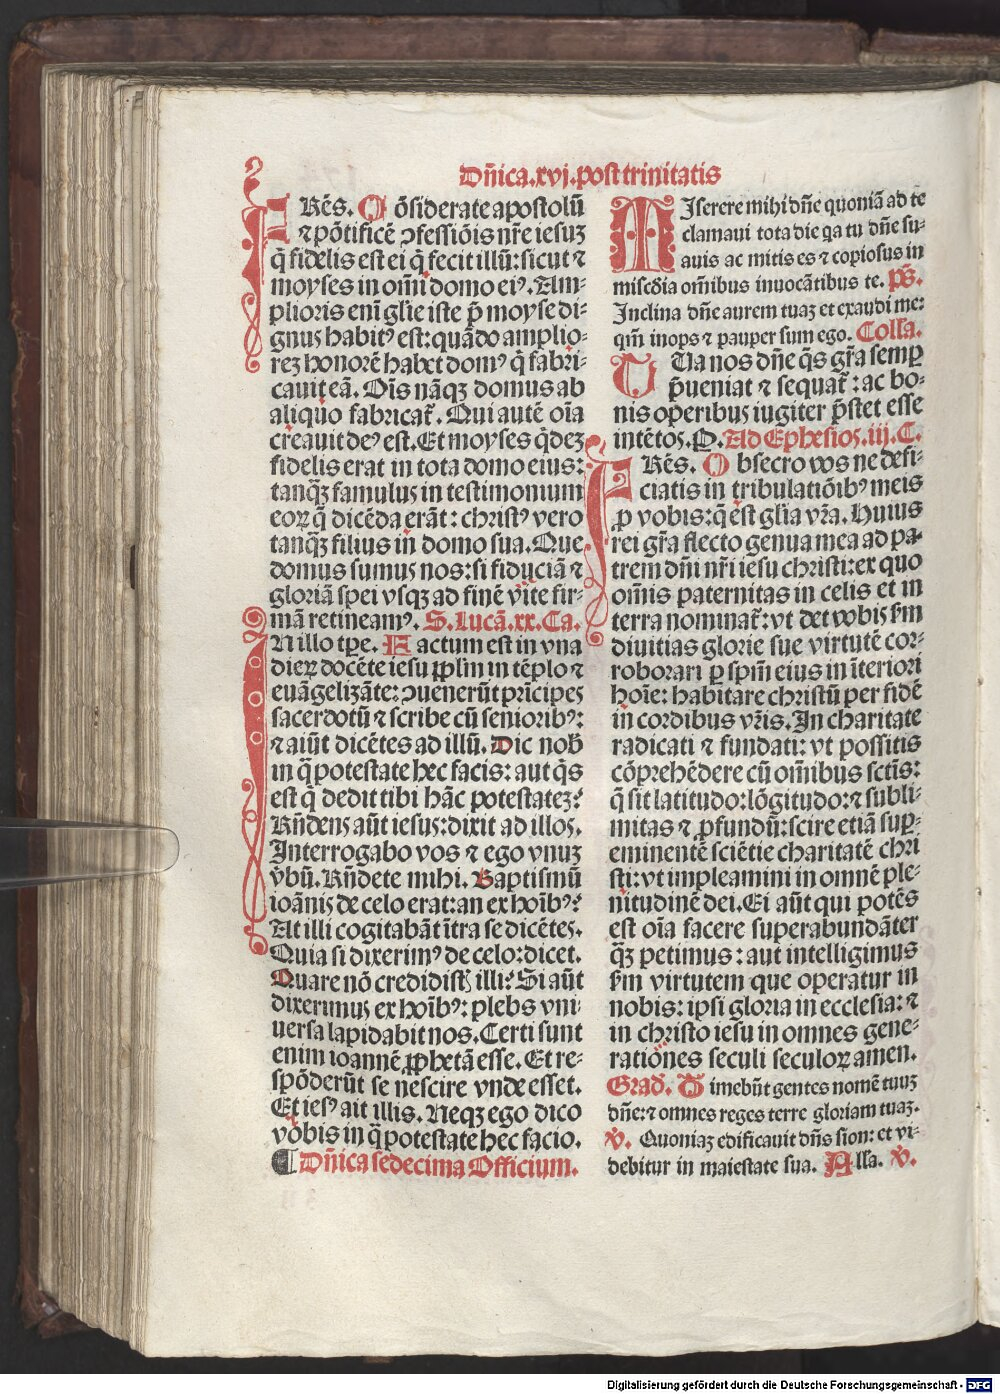 Dn̄ica.xvj.post trinitatis
FRēs. Cōsiderate apostolū
⁊ pōtificē ɔfessiōis nr̄e iesuꝫ
q̄ fidelis est ei q̇ fecit illū: sicut ⁊
moyses in om̄i domo eiꝰ. Am-
plioris eni gl̄ie iste p̄ moyse di-
gnus habitꝰ est: quādo amplio-
reꝫ honorē habet domꝰ q̄ fabri-
cauit eā. Oīs nāqꝫ domus ab
aliquo fabricat̄. Qui autē oīa
creauit deꝰ est. Et moyses q̇deꝫ
fidelis erat in tota domo eius:
tanqꝫ̄ famulus in testimonium
eoꝝ q̄ dicēda erāt: christꝰ vero
tanqꝫ̄ filius in domo sua. Que
domus sumus nos: si fiduciā ⁊
gloriā spei vsqꝫ ad finē vite fir-
mā retineamꝰ. S. Lucā. xx. Ca.
IN illo tp̄e. Factum est in vna
dieꝝ docēte iesu ꝓpl̄m in tēplo ⁊
euāgelizāte: ɔuenerūt prīcipes
sacerdotū ⁊ scribe cū seniorib:
⁊ aiūt dicētes ad illū. Dic nob̄
in q̄ potestate hec facis: aut q̇s
est q̇ dedit tibi hāc potestateꝫ?
Rn̄dens aūt iesus: dixit ad illos.
Interrogabo vos ⁊ ego vnuꝫ
v̄bū. Rn̄dete mihi. Baptismū
ioānis de celo erat: an ex hoībꝰ?
At illi cogitabāt ītra se dicētes.
Quia si dixerimꝰ de celo: dicet.
Quare nō credidist illi? Si aūt
dixerimus ex hoībꝰ: plebs vni
uersa lapidabit nos. Certi sunt
enim ioannē ꝓphetā esse. Et re-
spōderūt se nescire vnde esset.
Et iesꝰ ait illis. Neqꝫ ego dico
vobis in q̄ potestate hec facio.
¶ Dn̄ica sedecima Officium.
MIserere mihi dn̄e quoniā ad te
clamaui tota die qa tu dn̄e su-
auis ac mitis es ⁊ copiosus in
miscd̄ia om̄ibus inuocātibus te. ps̄.
Inclina dn̄e aurem tuaꝫ et exaudi me:
qm̄ inops ⁊ pauper sum ego. Coll̄a.
TUa nos dn̄e q̄s gr̄a semꝑ
p̄ueniat ⁊ sequat̄: ac bo-
nis operibus iugiter p̄stet esse
intētos. P. Ad Ephesios. iij. C.
FRēs. Obsecro vos ne defi-
ciatis in tribulatiōibꝰ meis
ꝓ vobis: q̄ est gl̄ia vr̄a. Huius
rei gr̄a flecto genua mea ad pa-
trem dn̄i nr̄i iesu christi: ex quo
om̄is paternitas in celis et in
terra nominat̄: vt det vobis ẜm
diuitias glorie sue virtutē cor-
roborari ꝑ spm̄ eius in īteriori
hoīe: habitare christū per fidē
in cordibus vr̄is. In charitate
radicati ⁊ fundati: vt possitis
cōprehēdere cū om̄ibus sctīs:
q̄ sit latitudo: lōgitudo: ⁊ subli-
mitas ⁊ ꝓfundū: scire etiā suꝑ-
eminentē sciētie charitatē chri
sti: vt impleamini in omnē ple-
nitudinē dei. Ei aūt qui potēs
est oīa facere superabundāter
qꝫ̄ petimus: aut intelligimus
ẜm virtutem que operatur in
nobis: ipsi gloria in ecclesia: ⁊
in christo iesu in omnes gene-
rationes seculi seculoꝝ amen.
Grad̄. Timebūt gentes nomē tuuꝫ
dn̄e: ⁊ omnes reges terre gloriam tuaꝫ.
℣. Quoniaꝫ edificauit dn̄s sion: et vi-
debitur in maiestate sua. All̄a. ℣.
Digitalisierung gefördert durch die Deutsche Forschungsgemeinschaft - DFG